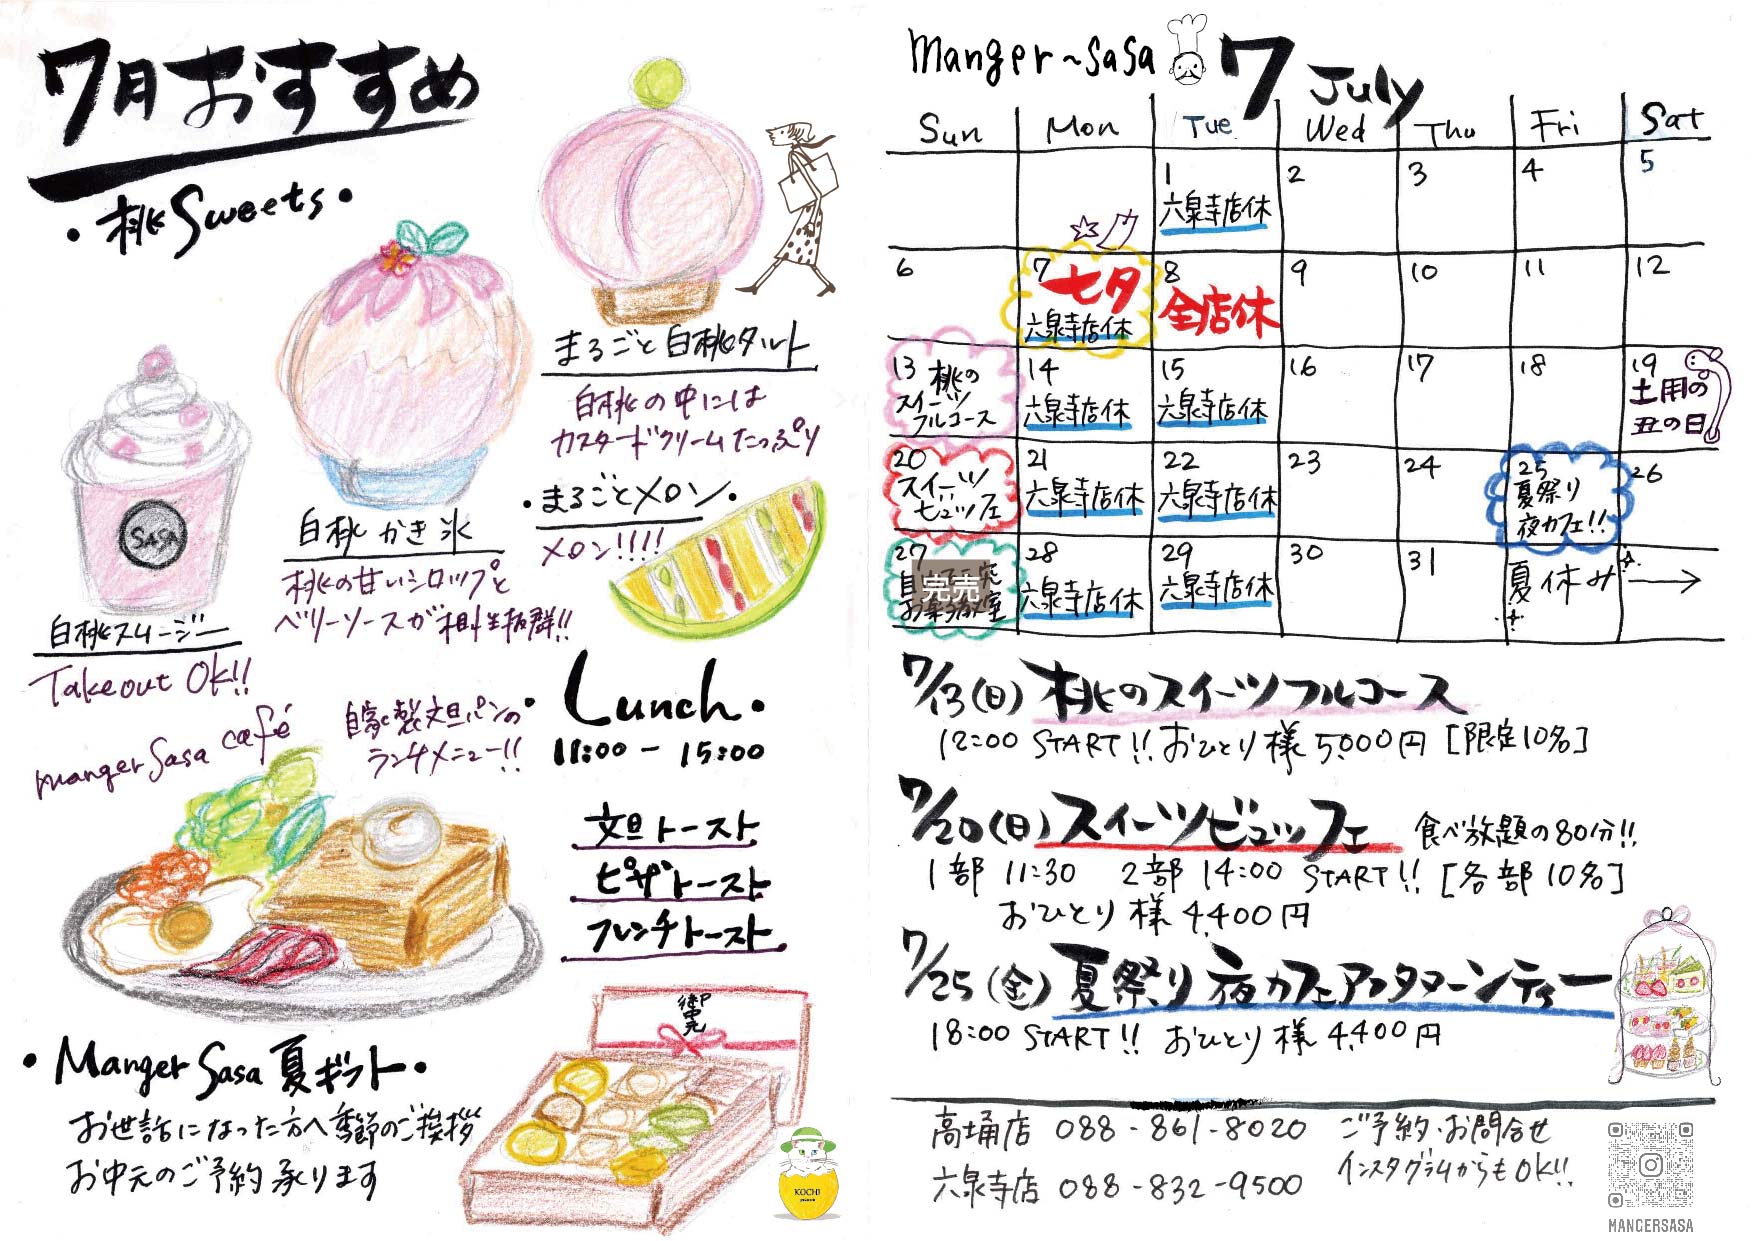 7月おすすめ
・桃Sweets・
まるごと白桃タルト
白桃の中には
カスタードクリームたっぷり
白桃かき氷
桃の甘いシロップと
ベリーソースが相性抜群!!
・まるごとメロン・
メロン!!!!
SASA
白桃スムージー
Takeout OK!!
manger Sasa café
自家製文旦パンの
ランチメニュー!!
・Lunch・
11:00 - 15:00
文旦トースト
ピザトースト
フレンチトースト
・Manger Sasa 夏ギフト・
お世話になった方へ季節のご挨拶
お中元のご予約承ります
御中元
KOCHI
Manger~SaSa 7 July
Sun Mon Tue Wed Thu Fri Sat
1 2 3 4 5
六泉寺店休
6 7 8 9 10 11 12
七夕
六泉寺店休
全店休
13 14 15 16 17 18 19
桃の
スイーツ
フルコース
六泉寺店休
六泉寺店休
土用の
丑の日
20 21 22 23 24 25 26
スイーツ
ビュッフェ
六泉寺店休
六泉寺店休
夏祭り
夜カフェ!!
27 28 29 30 31
完売
六泉寺店休
六泉寺店休
夏休み→
7/13(日)桃のスイーツフルコース
12:00 START!! おひとり様5,000円 [限定10名]
7/20(日)スイーツビュッフェ 食べ放題の80分!!
1部 11:30 2部 14:00 START!! [各部10名]
おひとり様4,400円
7/25(金)夏祭り夜カフェアフタヌーンティー
18:00 START!! おひとり様4,400円
高埇店 088-861-8020
六泉寺店 088-832-9500
ご予約・お問合せ
インスタグラムからもOK!!
MANGERSASA